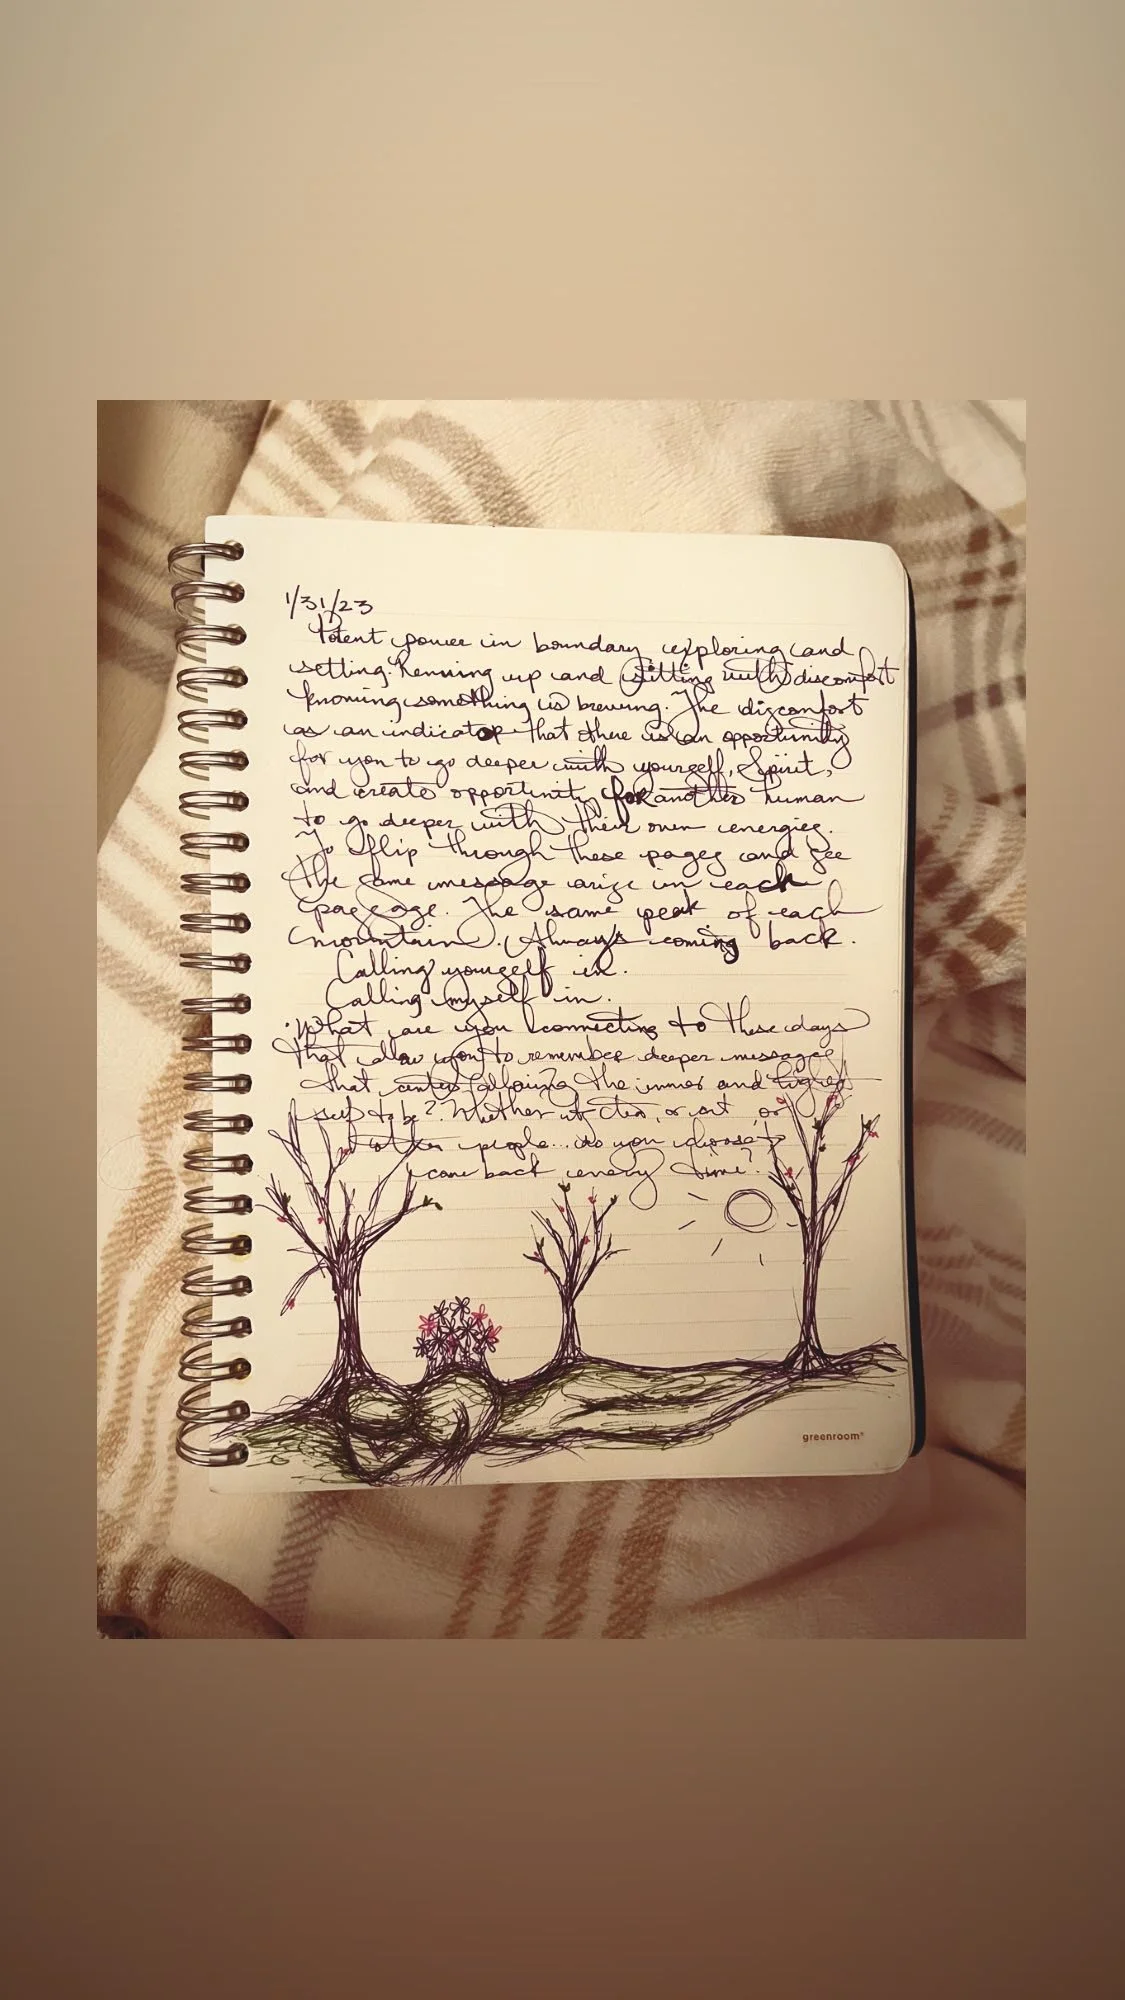 1/31/23
Potent power in boundary exploring and
setting. Revving up and sitting with discomfort
knowing something is brewing. The discomfort
as an indicator that there is an opportunity
for you to go deeper with yourself, Spirit,
and create opportunity for another human
to go deeper with their own energies.
To flip through these pages and see
the same message arise in each
passage. The same peak of each
mountain. Always coming back.
Calling yourself in.
Calling myself in.
What are you connecting to these days
that allow you to remember deeper messages
that the inner and higher
self to be? Whether it tea, or art, or
other people... do you choose to
come back every time?
greenroom